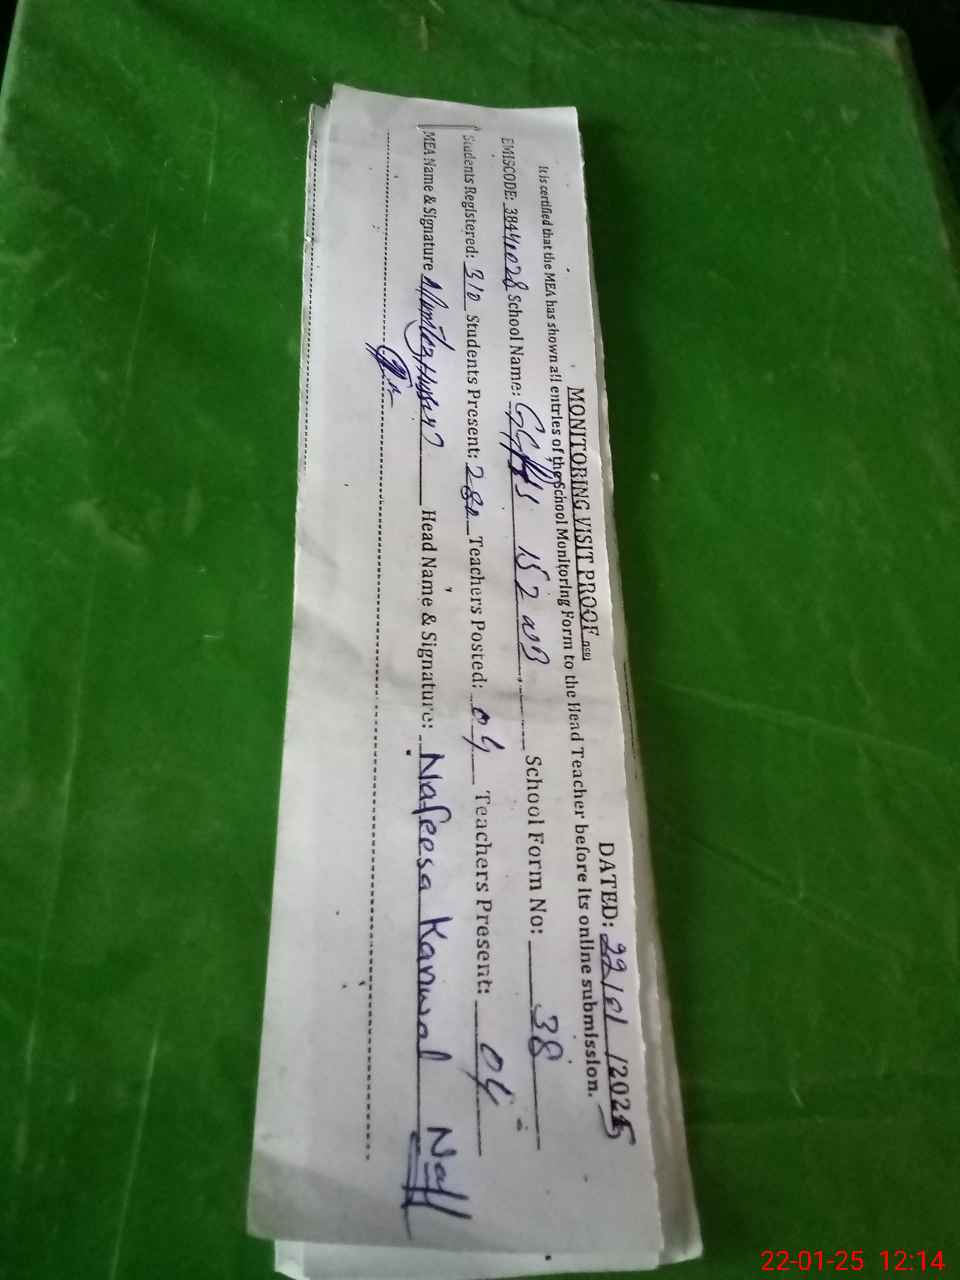 MONITORING VISIT PROOF
DATED: 22/01/2025
It is certified that the MEA has shown all entries of the School Monitoring Form to the Head Teacher before its online submission.
EMISCODE: 38440028 School Name: 152 School Form No: 38
Students Registered: 310 Students Present: 280 Teachers Posted: 04 Teachers Present: 04
MEA Name & Signature Head Name & Signature: Nafeesa Kanwal
22-01-25 12:14